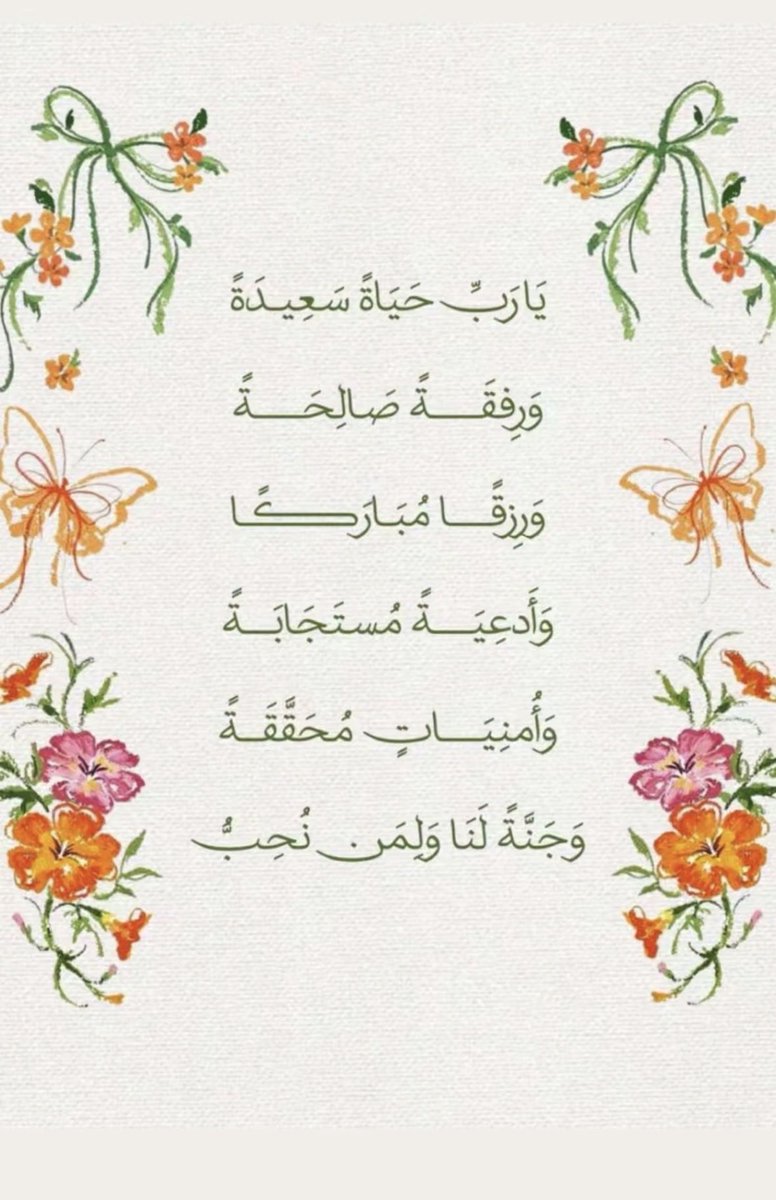 يَا رَبِّ حَيَاةً سَعِيدَةً
وَرِفقَةً صَالِحَةً
وَرِزقًا مُبَارَكًا
وَأَدعِيَةً مُستَجَابَةً
وَأُمنِيَاتٍ مُحَقَّقَةً
وَجَنَّةً لَنَا وَلِمَن نُحِبُّ